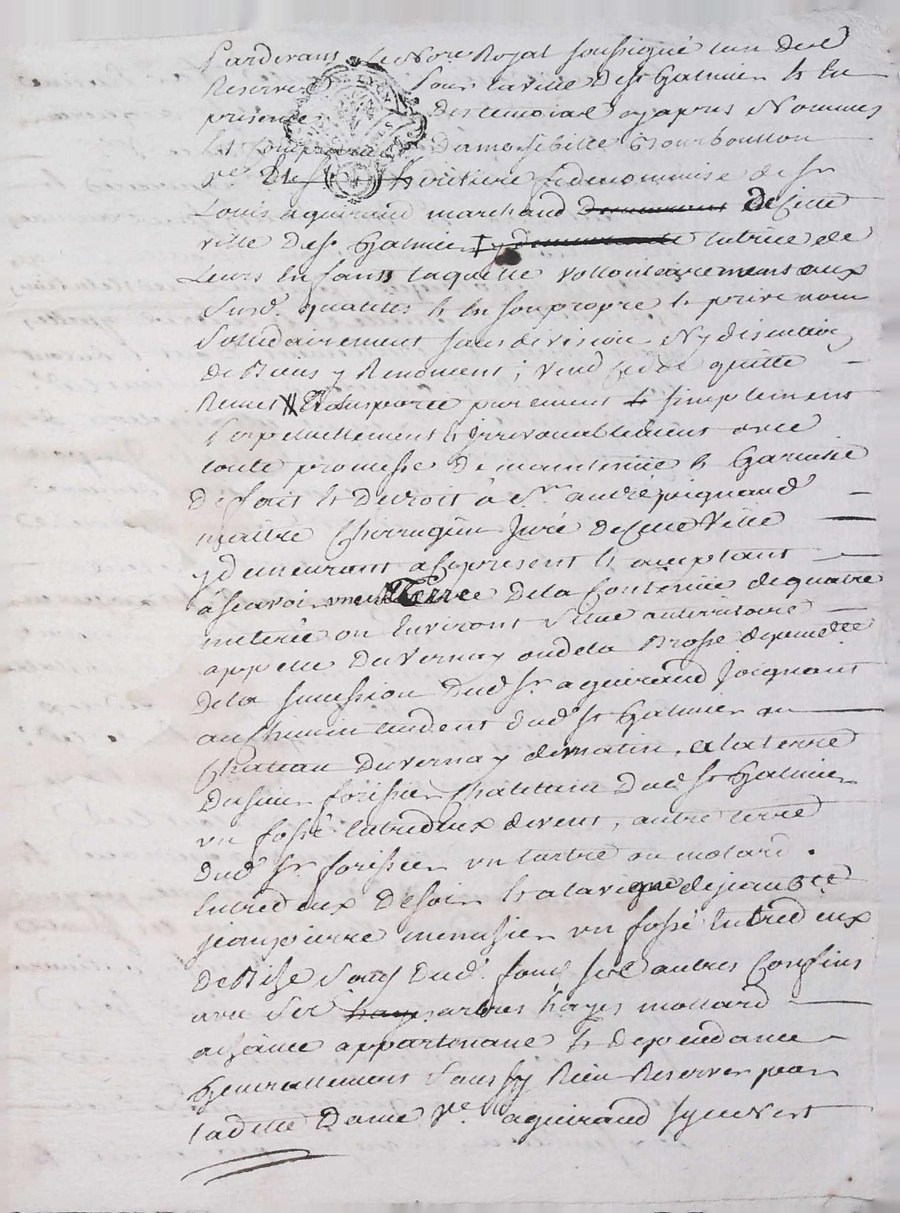 Pardevant le Nore Royal soussigné lun des
Reservés Pour la ville de st Galmier & en
presence des temoins cy apres Nommés
est Comparue dame sibille Bourboullon
ve & heritiere fideicommise de sr
Louis aguiraud marchand demeurant de cette
ville de st Galmier y demeurante tutrice de
Leurs Enfans laquelle vollontairement aux
susd. qualités & en son propre & privé nom
Solidairement sans division Ny discution
de Biens y Renoncent; vend cede quitte
Remet Et transporte purement & simplement
Perpetuellement & Irrevocablement avec
toute promesse De maintenir & Garantir
De fait & De droit à Sr andré poignaud
maitre Chirurgien Juré De cette Ville
y demeurant a Ce present & acceptant
à scavoir une Terre De la Contenue de quatre
meterée ou Environt Situé au terittoire
appellé Du Vernay ou de la Brosse
De la succession Dud. sr aguiraud Joignant
au Chemin tendent Dud. st Galmier au
Chateau Du vernay de matin, a la terre
Du sieur forissier Chatelain Dud st Galmier
un fossé Entredeux de vent, autre terre
Dud. sr forissier un tartre ou molard.
Entredeux De soir & a la vigne de jean
jean pierre menusier un fossé Entredeux
De Bize Sauf Dud. fond ses autres Confins
avec ses haye arbres hayes mollard
aisance appartenance & dependance
Generallement Sans y Rien Reserver par
laditte Dame ve. aguiraud